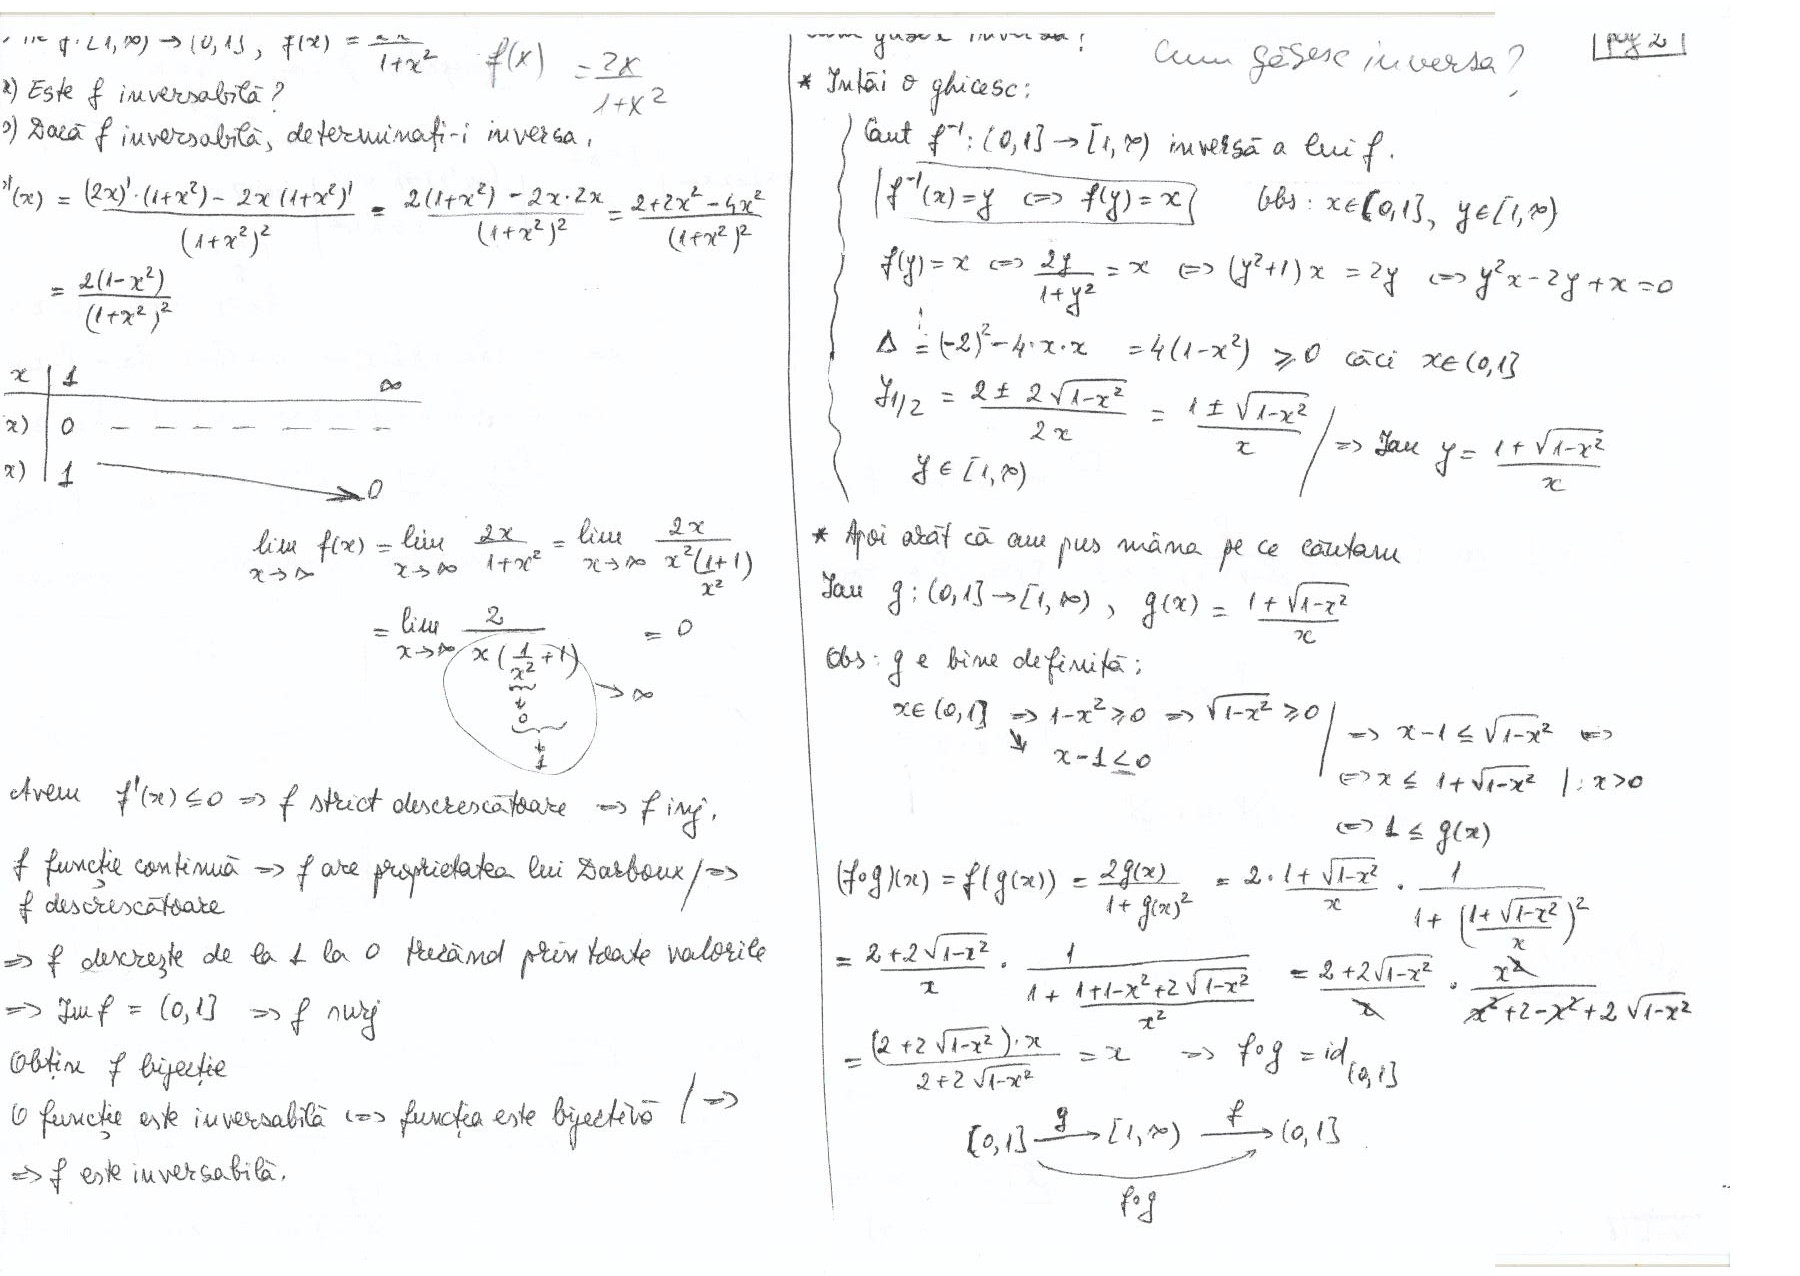 f: [1,∞) → (0,1], f(x) = 2x/(1+x²)   f(x) = 2x/(1+x²)
a) Este f inversabilă?
b) Dacă f inversabilă, determinați-i inversa.
f'(x) = ((2x)'·(1+x²) - 2x(1+x²)')/(1+x²)² = (2(1+x²) - 2x·2x)/(1+x²)² = (2+2x²-4x²)/(1+x²)²
= 2(1-x²)/(1+x²)²
x | 1 ∞
x) | 0 - - - - - - -
x) | 1 → 0
lim x→∞ f(x) = lim x→∞ 2x/(1+x²) = lim x→∞ 2x/(x²(1/x²+1))
= lim x→∞ 2/(x(1/x²+1)) = 0
→ ∞
↓
0
↓
1
Avem f'(x) ≤ 0 => f strict descrescătoare => f inj.
f funcție continuă => f are proprietatea lui Darboux / =>
f descrescătoare
=> f descrește de la 1 la 0 trecând prin toate valorile
=> Im f = (0,1] => f surj
Obțin f bijecție
O funcție este inversabilă <=> funcția este bijectivă / =>
=> f este inversabilă.
Cum găsesc inversa?   Cum găsesc inversa?   pag 2
* Întâi o ghicesc:
Caut f⁻¹: (0,1] → [1,∞) inversă a lui f.
f⁻¹(x) = y <=> f(y) = x   Obs: x∈(0,1], y∈[1,∞)
f(y) = x <=> 2y/(1+y²) = x <=> (y²+1)x = 2y <=> y²x-2y+x=0
Δ = (-2)²-4·x·x = 4(1-x²) ≥ 0 căci x∈(0,1]
y1/2 = (2±2√(1-x²))/2x = (1±√(1-x²))/x / => Iau y = (1+√(1-x²))/x
y∈[1,∞)
* Apoi arăt că am pus mâna pe ce căutam
Iau g: (0,1] → [1,∞), g(x) = (1+√(1-x²))/x
Obs: g e bine definită;
x∈(0,1] => 1-x² ≥ 0 => √(1-x²) ≥ 0 / => x-1 ≤ √(1-x²) <=>
↘ x-1 ≤ 0
<=> x ≤ 1+√(1-x²) | : x>0
<=> 1 ≤ g(x)
(f∘g)(x) = f(g(x)) = 2g(x)/(1+g(x)²) = 2·(1+√(1-x²))/x · 1/(1+((1+√(1-x²))/x)²)
= (2+2√(1-x²))/x · 1/(1+(1+1-x²+2√(1-x²))/x²) = (2+2√(1-x²))/x · x²/(x²+2-x²+2√(1-x²))
= ((2+2√(1-x²))·x)/(2+2√(1-x²)) = x => f∘g = id(0,1]
(0,1] —g→ [1,∞) —f→ (0,1]
f∘g